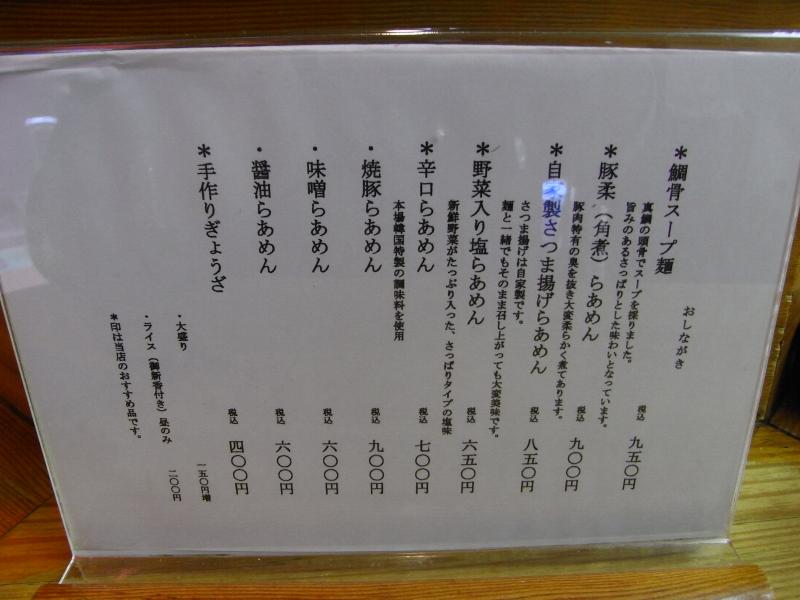 おしながき
＊鯛骨スープ麺
税込 九五〇円
真鯛の頭骨でスープを採りました。
旨みのあるさっぱりとした味わいとなっています。
＊豚柔（角煮）らあめん
税込 九〇〇円
豚肉特有の臭を抜き大変柔らかく煮てあります。
＊自家製さつま揚げらあめん
税込 八五〇円
さつま揚げは自家製です。
麺と一緒でもそのまま召し上がっても大変美味です。
＊野菜入り塩らあめん
税込 六五〇円
新鮮野菜がたっぷり入った、さっぱりタイプの塩味
＊辛口らあめん
税込 七〇〇円
本場韓国特製の調味料を使用
・焼豚らあめん
税込 九〇〇円
・味噌らあめん
税込 六〇〇円
・醤油らあめん
税込 六〇〇円
＊手作りぎょうざ
税込 四〇〇円
・大盛り
一五〇円増
・ライス（御新香付き）昼のみ
二〇〇円
＊印は当店のおすすめ品です。